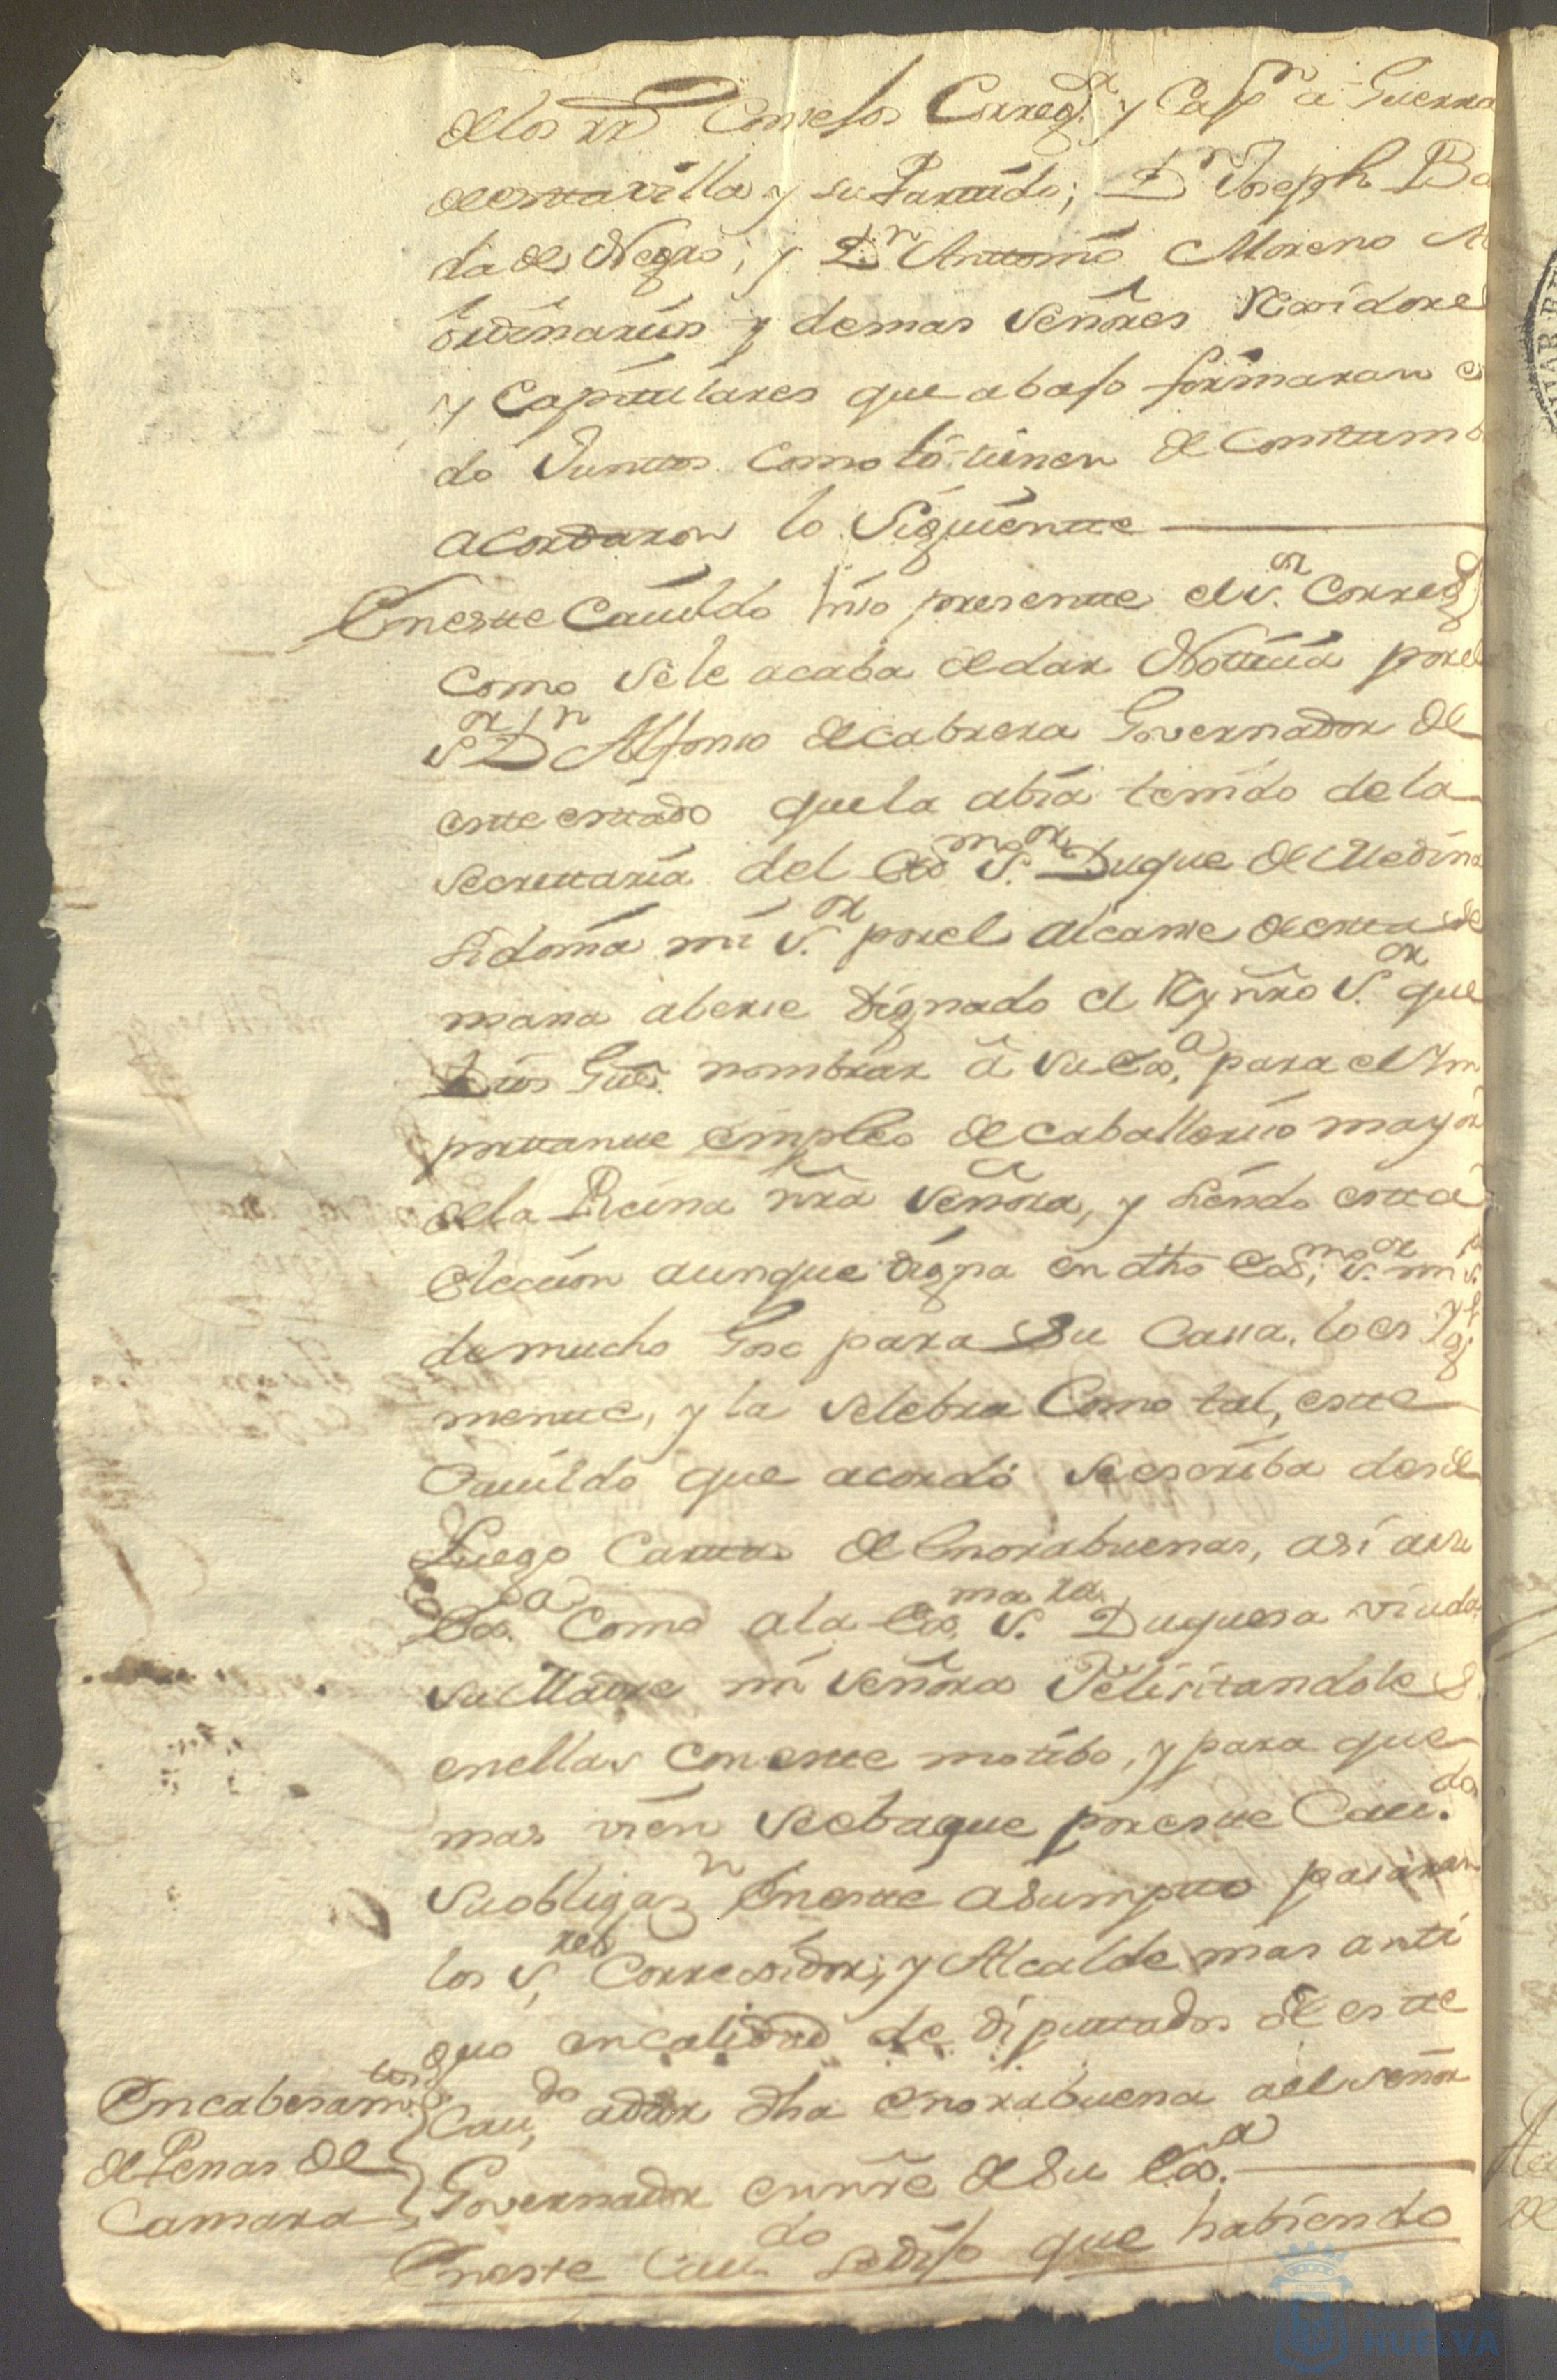 de los R.s Consejos Correg.or y Cap.n a Guerra
de esta villa y su Partido; D.n Joseph Ba
da de Negro; y D.n Anttonio Moreno
ordinarios y demas señores Rexidores
y Capitulares que abajo firmaran
do Junttos como lo tienen de Costtumb
acordaron lo siguientte
En estte Cavildo hiso presentte el s.or Correg.or
como se le acaba de dar Notticia por el
s.or D.n Alfonso de cabrera Governador de
estte esttado que la abia tenido de la
secrettaria del Ex.mo S.or Duque de Medina
sidonia mi s.or por el alcanse de estta se
mana aberse dignado el Rey nr̃o S.or que
Dios Gue. nombrar â su Ex.a para el Im
porttantte empleo de caballeriso mayor
de la Reina nr̃a señora, y siendo estta
eleccion aunque digna en dho Ex.mo s.or mi s.r
de mucho Goso para su Casa, lo es Yg.l
mentte, y la selebra Como tal, estte
Cavildo que acordó se escriba desde
Luego Carttas de Enorabuenas, asi a su
Ex.a Como a la Ex.ma s.ra Duquesa viuda
su Madre mi señora Felisitandoles
en ellas con estte motibo, y para que
mas vien se ebaque por estte Cavi.do
su obligaz.n En estte asumptto pasaran
los S.res Correxidor, y Alcalde mas anti
guo en calidad de diputtados de estte
Cav.do a dar dha enorabuena al señor
Governador en nr̃e de su Ex.a
Encabesam.tos
de Penas de
Camara
En este Cavi.do se dijo que habiendo
HUELVA